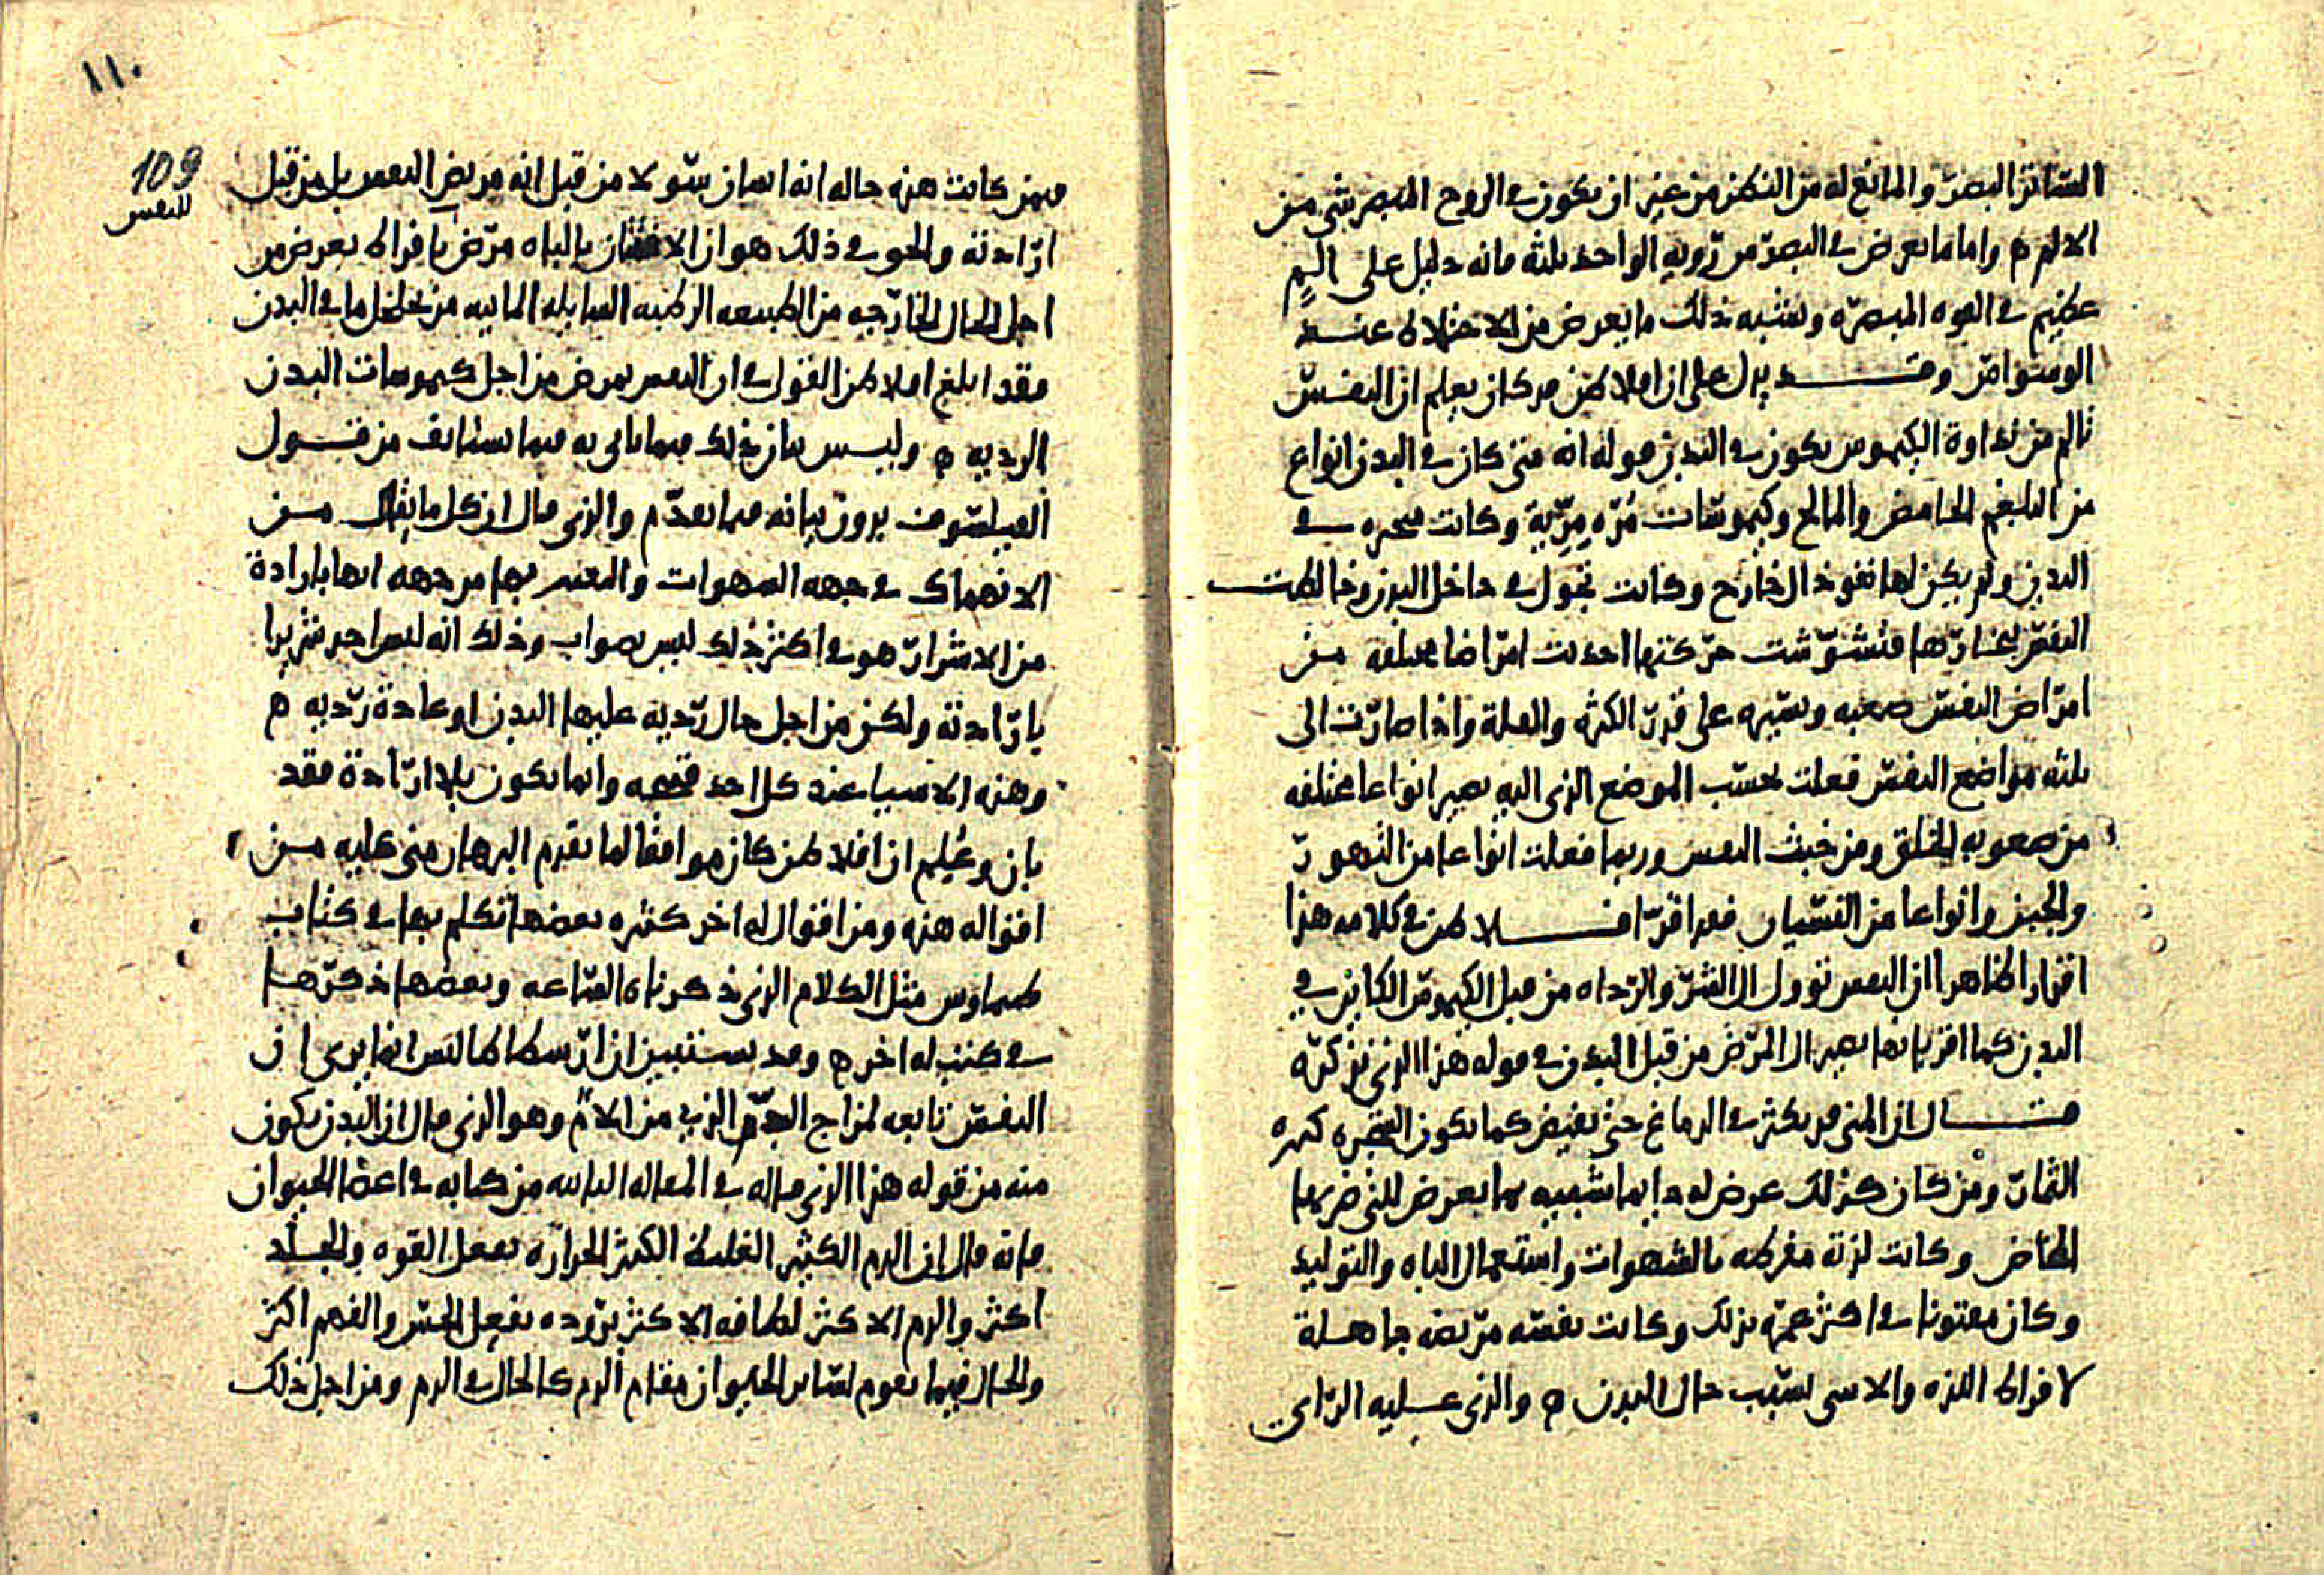 الساتر البصر والمانع له من النظر من غير ان يكون في الروح المبصر شي من
الالم ه واما ما يعرض في البصر من رويه الواحد ثلثه فانه دليل على الم
عظيم في القوه المبصره ونشبه بذلك ما يعرض من الاختلاط عند
الومنوامر وقد يدل على ان افلاطن قد كان يعلم ان النفس
تالم من رداوة الكيموس يكون في البدن قوله انه متى كان في البدن انواع
من البلغم الحامض والمالح وكيموسات مُرّه مِرّية وكانت متحيره في
البدن ولم يكن لها نفوذ الى خارج وكانت تجول في داخل البدن وخالطت
النفس بخارتها فتشوشت حركتها احدثت امراضا مختلفه من
امراض النفس صعبه ويسيره على قدر الكثره والقلة واذا صارت الى
ثلثه مواضع النفس فعلت بحسب الموضع الذى اليه تصير انواعا مختلفه
من صعوبه الخلق ومن خبث النفس وربما فعلت انواعا من التهور
والجبن وانواعا من النسيان فقد اقر افلاطن في كلامه هذا
اقرارا ظاهرا ان النفس توول الى الشر والرداه من قبل الكيموس الكاين في
البدن كما اقر بانها تصير الى المرض من قبل البدن في قوله هذا الذى نذكره
قال ان المنى قد يكثر في الدماغ حتى يفيض كما تكون الشجره كثيره
الثمار ومن كان كذلك عرض له دايما شبيه بما يعرض للتى ضربها
المخاض وكانت لذته مفرطه بالشهوات واستعمال الباه والتوليد
وكان مفتونا في اكثر عمره بذلك وكانت نفسه مريضه جاهلة
لافراط اللذه والاسى بسبب حال البدن ه والذى عليه الراى
١١٠
109
للنفس
فيمن كانت هذه حاله انه انسان سو لا من قبل انه مريض النفس بل من قبل
ارادته والحق في ذلك هو ان الافتتان بالباه مرض بافراط يعرض من
اجل الحال الخارجه من الطبيعه الرطبه السايله المابيه من تخلخل ما في البدن
فقد ابلغ افلاطن القول في ان النفس تمرض من اجل كيموسات البدن
الرديه ه وليس بيان ذلك فيما ياتى به فيما يستانف من قول
الفيلسوف بدون بيانه فيما تقدم والذى قال ان كل ما يقال من
الانهماك في جهه الشهوات والتعيير بها من جهه انها بارادة
من الاشرار هو في اكثر ذلك ليس بصواب وذلك انه ليس احد شريرا
بارادته ولكن من اجل حال رديه عليها البدن او عادة رديه ه
وهذه الاسيا عند كل احد قبيحه وانما تكون بلا ارادة فقد
بان وعُلم ان افلاطن كان موافقا لما تقدم البرهان منى عليه من
اقواله هذه ومن اقوال له اخر كثيره بعضها تكلم بها في كتاب
طيماوس مثل الكلام الذى ذكرناه الساعه وبعضها ذكرها
في كتب له اخر ه وقد يستبين ان ارسطاطالس انما يرى ان
النفس تابعه لمزاج الدم الذى من الام وهو الذى قال ان البدن يكون
منه من قوله هذا الذى قاله في المقاله الثانيه من كتابه في اعضا الحيوان
فانه قال ان الدم الكثير الغليظ الكثير الحراره يفعل القوه والجلد
اكثر والدم الاكثر لطافه الاكثر بروده يفعل الحس والفهم اكثر
والحال فيما يقوم لساير الحيوان مقام الدم كالحال في الدم ومن اجل ذلك